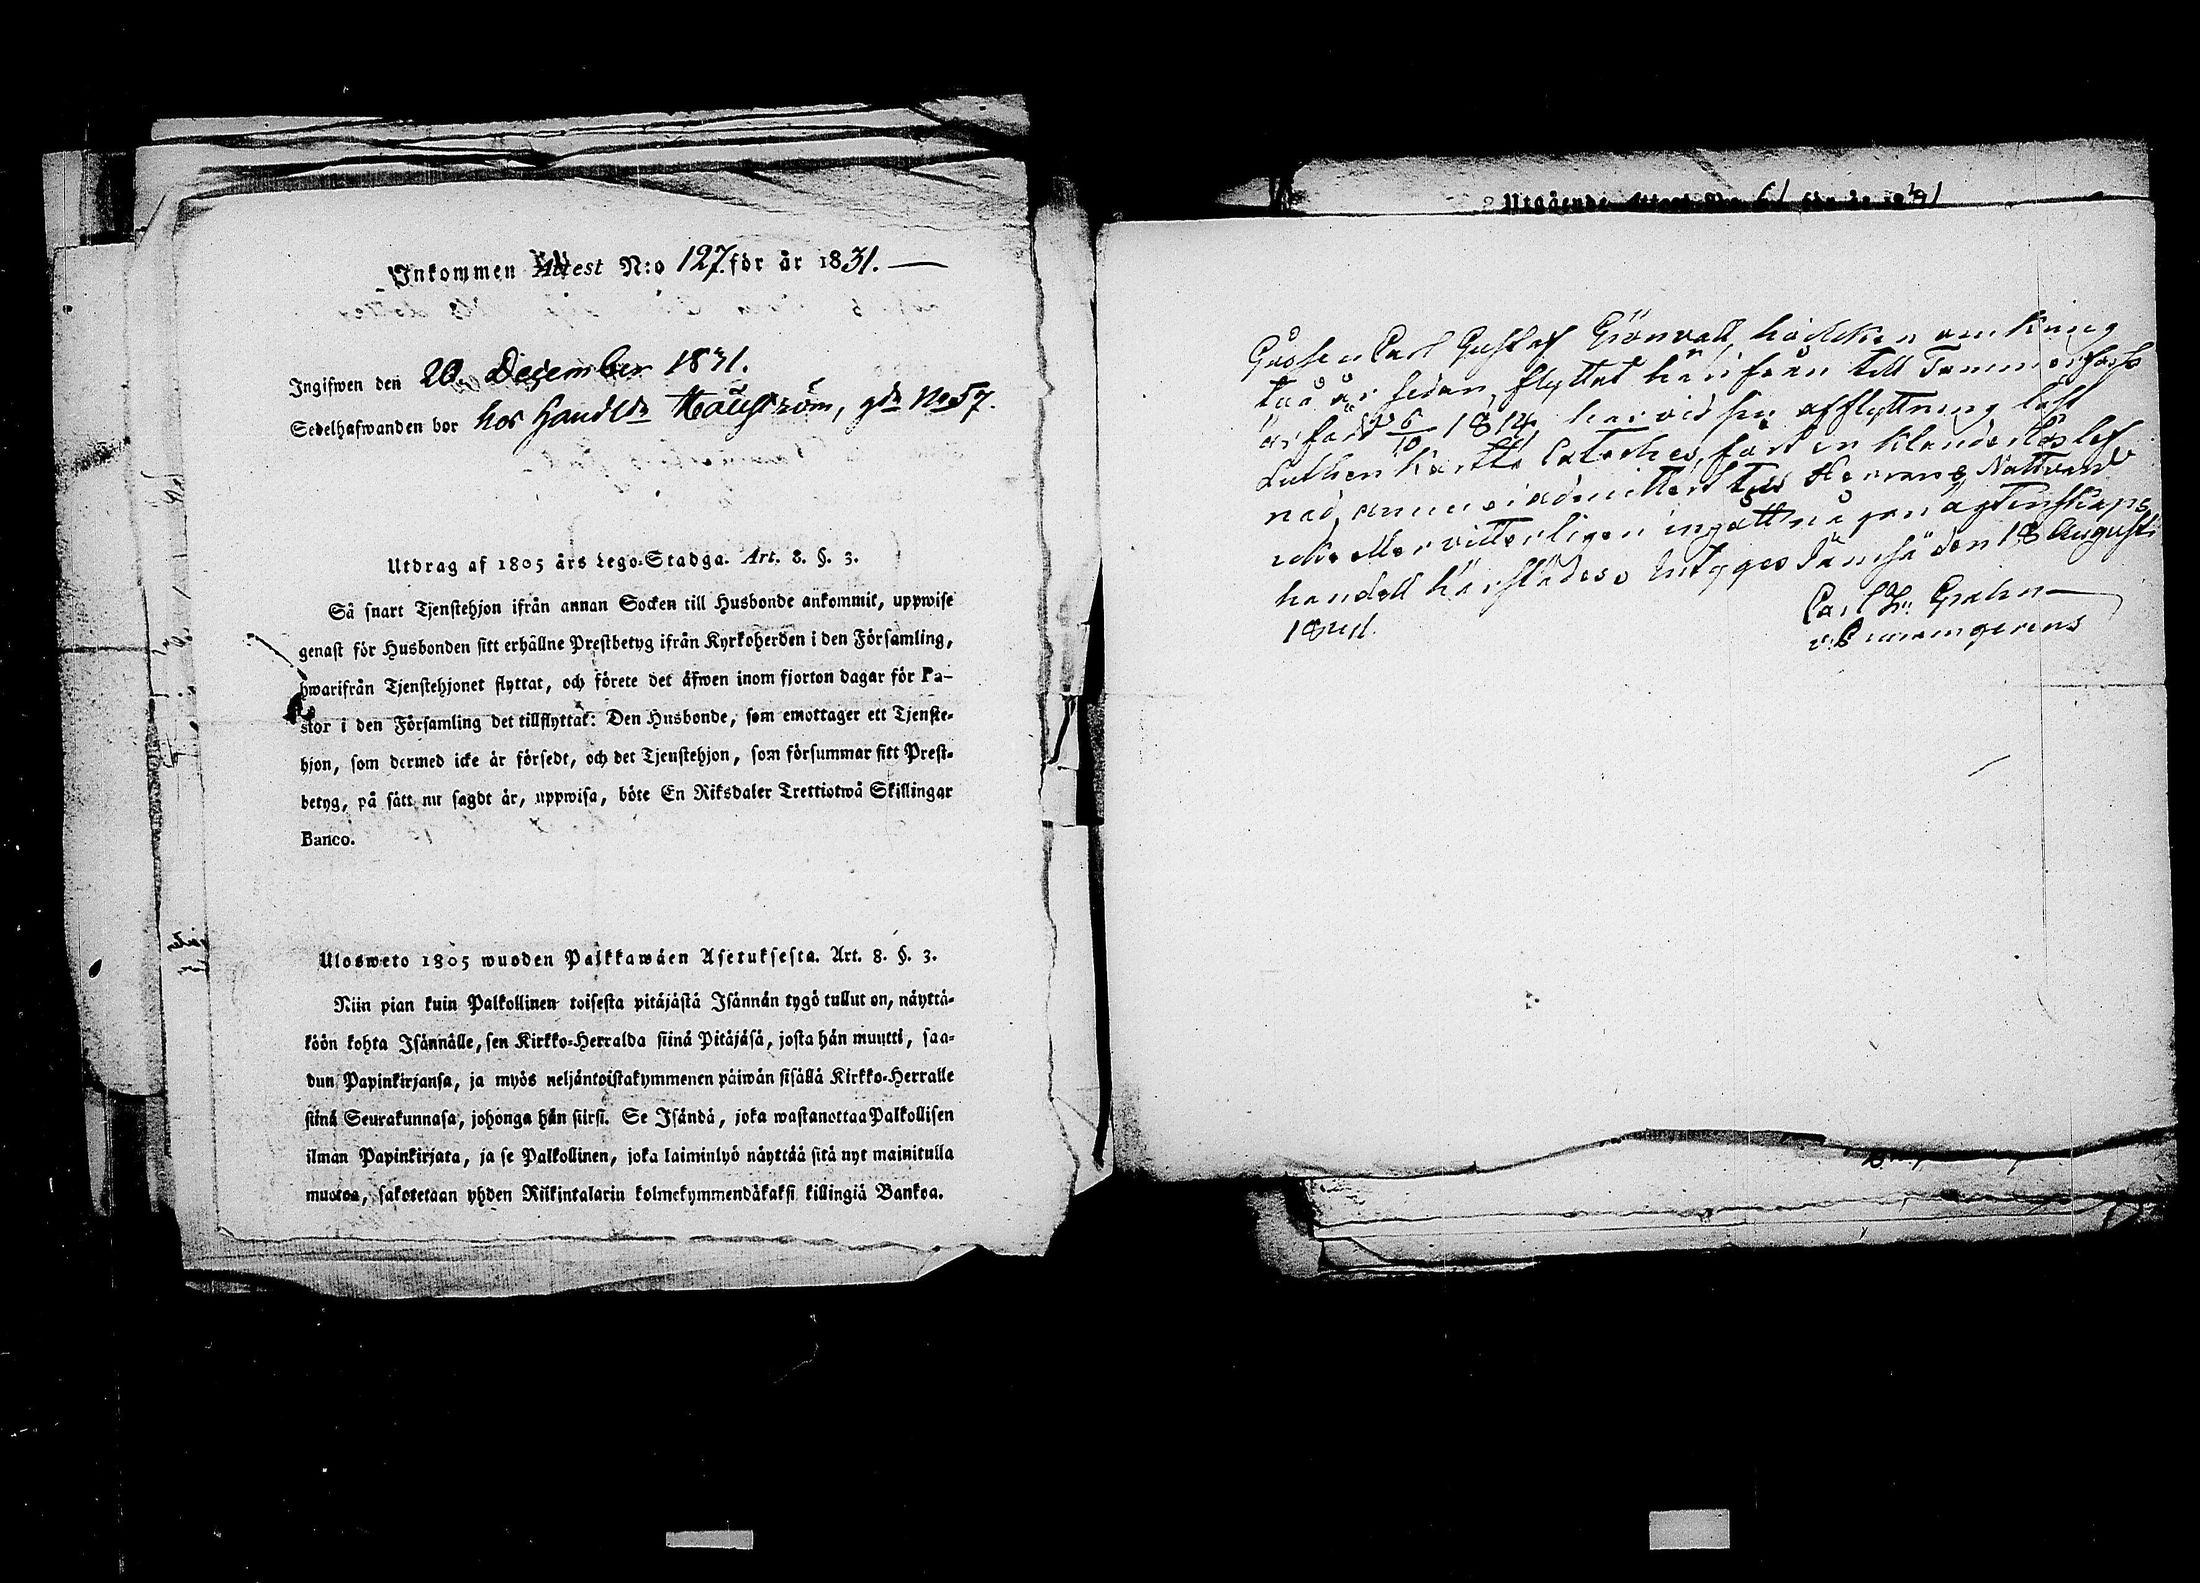 Inkommen Attest N:o 127. för år 1831.
Ingifwen den 20. December 1831.
Sedelhafwanden bor hos Handl:dn Hallström, gdn No 57.
Utdrag af 1805 års Lego-Stadga. Art. 8. §. 3.
Så snart Tjenstehjon ifrån annan Socken till Husbonde ankommit, uppwise
genast för Husbonden sitt erhållne Prestbetyg ifrån Kyrkoherden i den Församling,
hwarifrån Tjenstehjonet flyttat, och förete det äfwen inom fjorton dagar för Pa-
stor i den Församling det tillflyttat: Den Husbonde, som emottager ett Tjenste-
hjon, som dermed icke är försedt, och det Tjenstehjon, som försummar sitt Prest-
betyg, på sätt nu sagdt är, uppwisa, böte En Riksdaler Trettiotwå Skillingar
Banco.
Ulosweto 1805 wuoden Palkkawäen Asetuksesta. Art. 8. §. 3.
Niin pian kuin Palkollinen toisesta pitäjästä Isännän tygö tullut on, näyttä-
köön kohta Isännälle, sen Kirkko-Herralda siinä Pitäjäsä, josta hän muutti, saa-
dun Papinkirjansa, ja myös neljäntoistakymmenen päiwän sisällä Kirkko-Herralle
siinä Seurakunnasa, johonga hän siirsi. Se Isändä, joka wastanottaa Palkollisen
ilman Papinkirjata, ja se Palkollinen, joka laiminlyö näyttää sitä nyt mainitulla
muotoa, sakotetaan yhden Riikintalarin kolmekymmendäkaksi killingiä Bankoa.
Utgående Attest No 61 för år 1841
Gossen Carl Gustaf Grönvall, hvilken omkring
två år sedan, flyttat härifrån till Tammerfors
är född 5/10 1814, har vid sin afflyttning läst
Lutheri korta Cateches, fört en klanderlös lef
nad, ännu ej admitterad till Herrans Nattvard
icke eller vitterligen ingått någon ägtenskaps
handell härstädes. Intygges Jämsä den 18 Augusti
1841.
Carl Gr. Grahn
v. Pastor